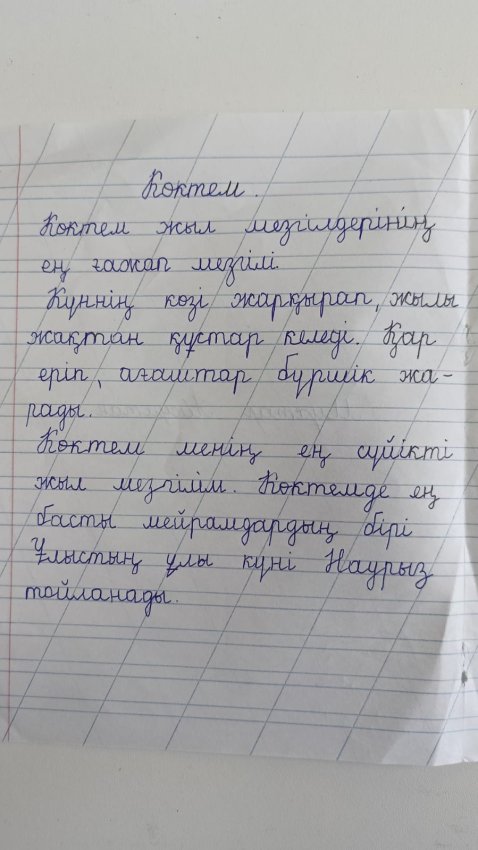 Көктем.
Көктем жыл мезгілдерінің
ең ғажап мезгілі.
Күннің көзі жарқырап, жылы
жақтан құстар келеді. Қар
еріп, ағаштар бүршік жа-
рады.
Көктем менің ең сүйікті
жыл мезгілім. Көктемде ең
басты мейрамдардың бірі
Ұлыстың ұлы күні Наурыз
тойланады.